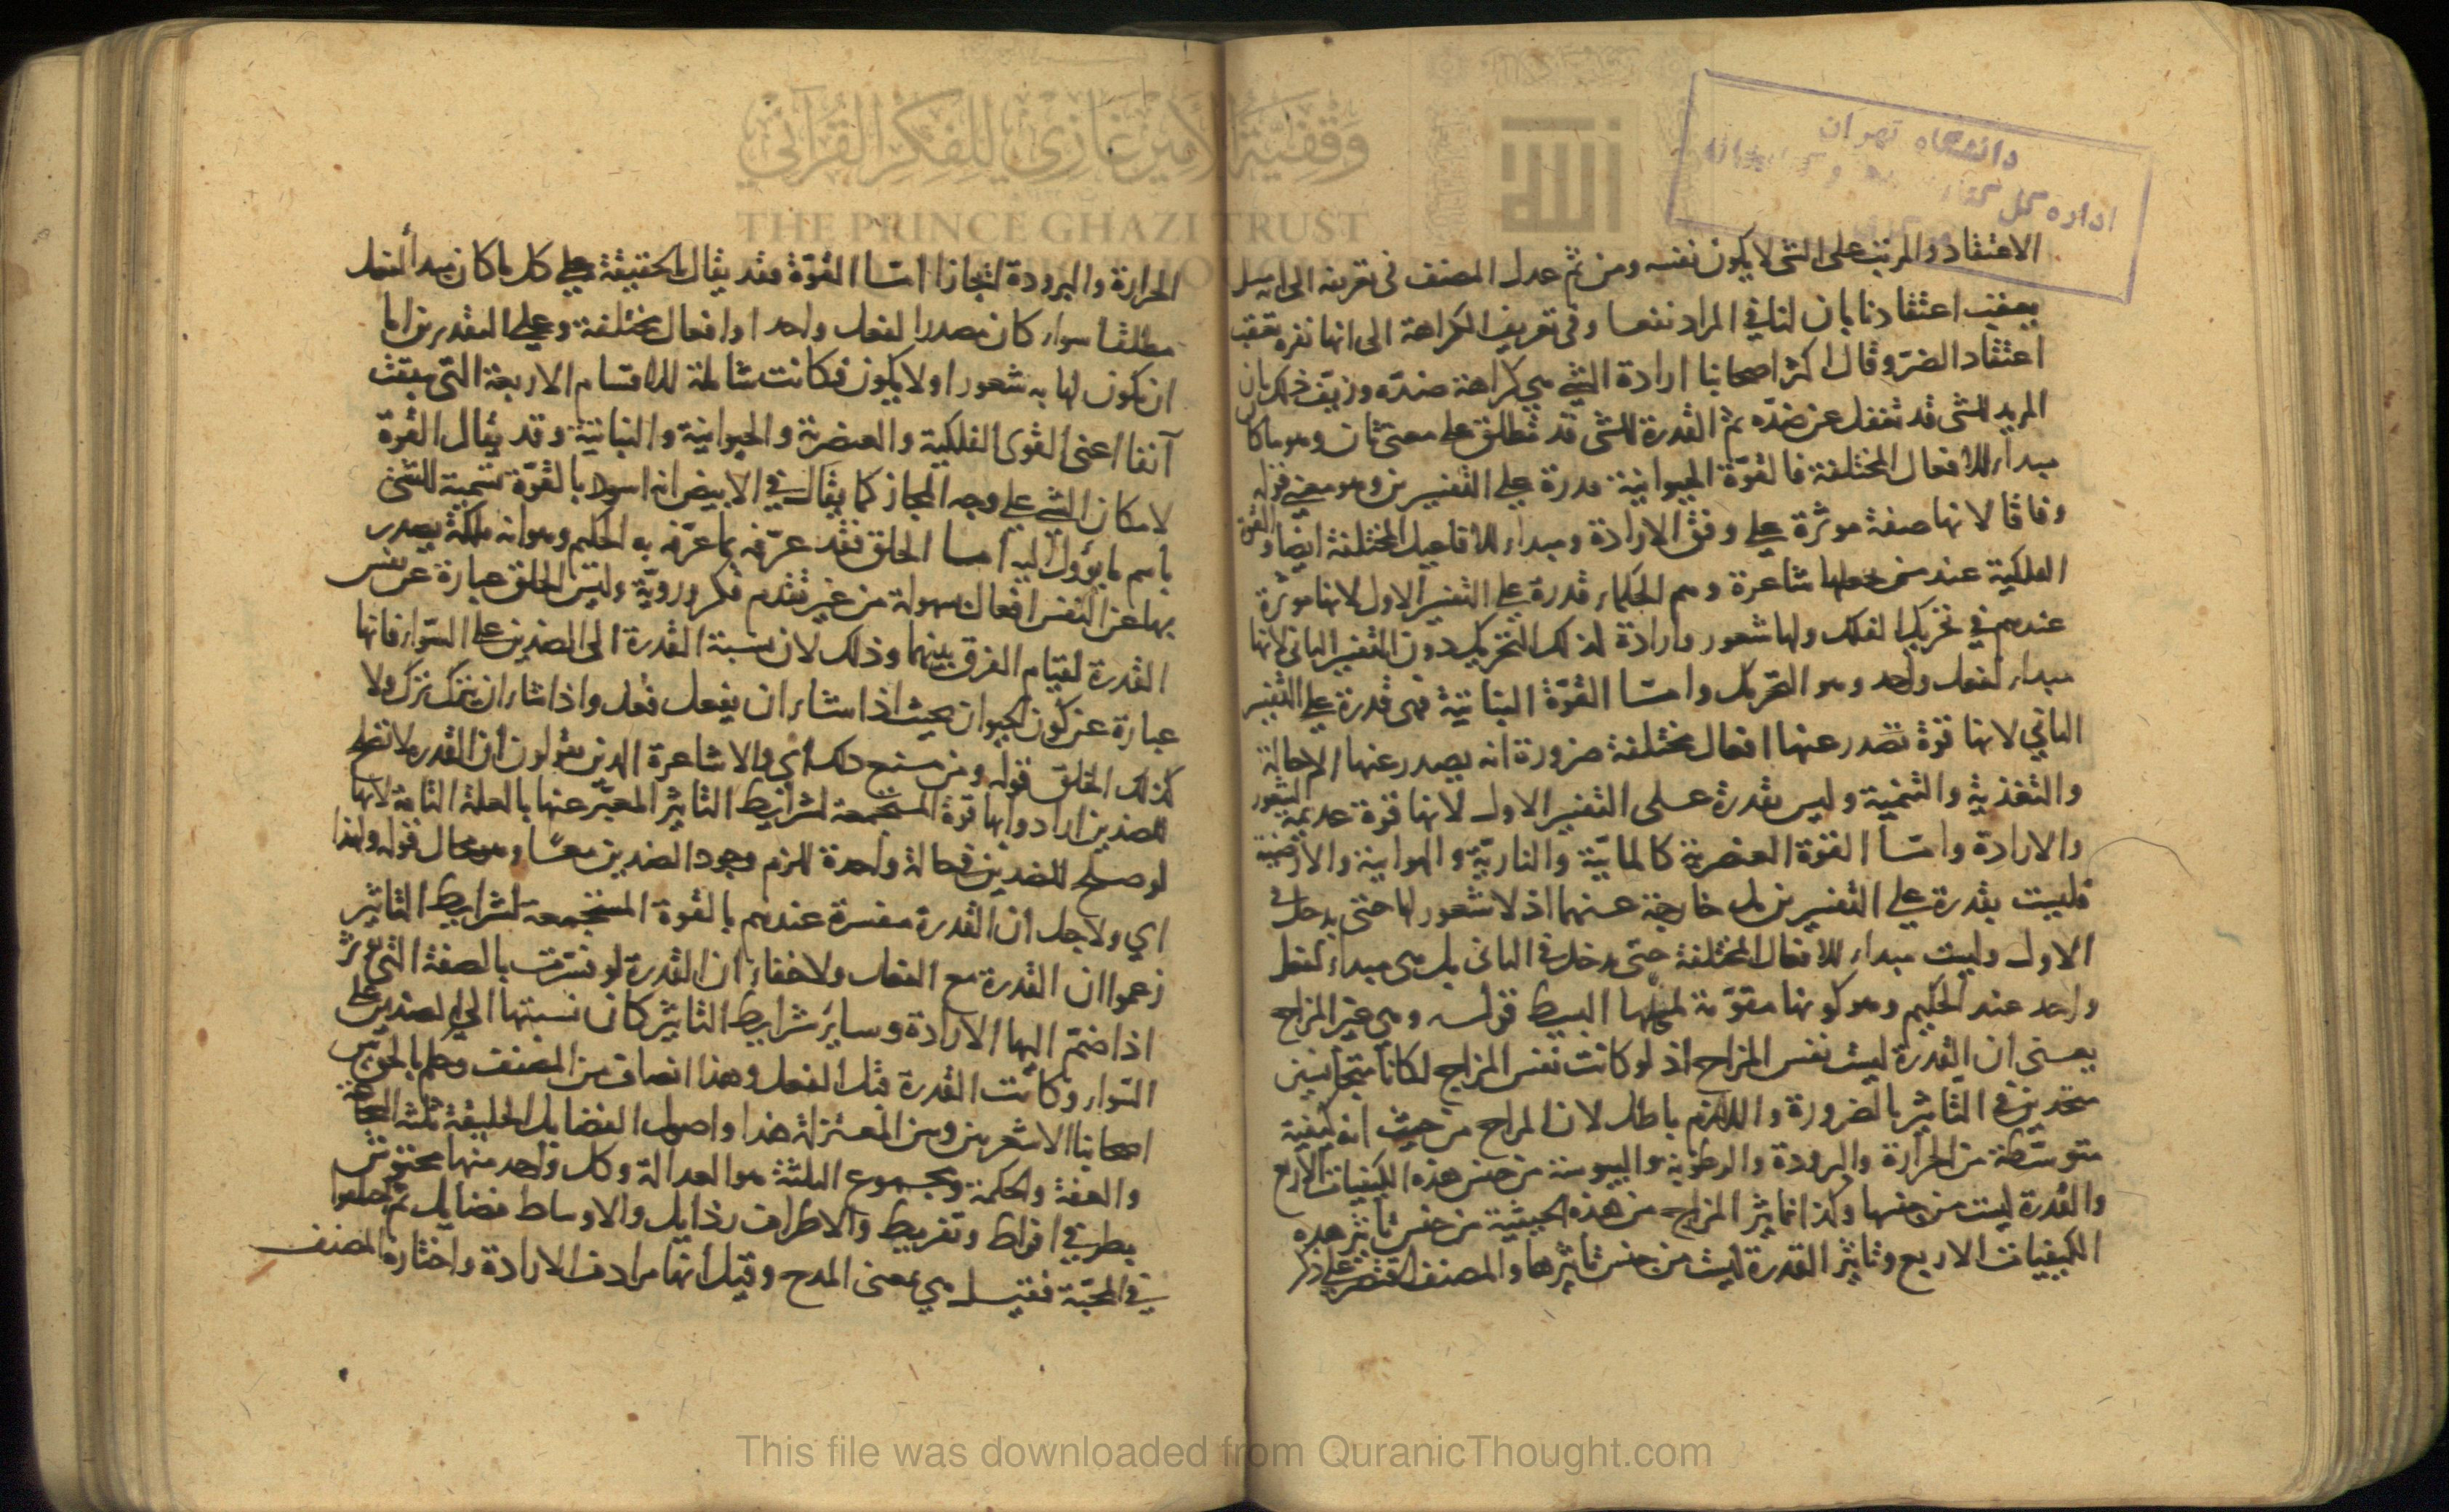 دانشگاه تهران
اداره كل
وقفية الأمير غازي للفكر القرآني
THE PRINCE GHAZI TRUST
الاعتقاد والمرتب على الشى لا يكون نفسه ومن ثم عدل المصنف فى تعريفه الى انه ميل
يعقب اعتقادنا بان لنا في المراد نفعا وفى تعريف الكراهة الى انها نفرة تعقب
اعتقاد الضرّ وقال اكثر اصحابنا ارادة الشئ هي كراهة ضدّه وزيّف ذلك بان
المريد للشى قد تغفل عن ضدّه ثم القدرة للشى قد تطلق على معنى ثان وهو ما كان
مبداء للافعال المختلفة فالقوّة الحيوانية قدرة على التفسيرين وهو معنى قوله
وفاقا لانها صفة موثرة على وفق الارادة ومبداء للافاعيل المختلفة ايضا والقوى
الفلكية عند من جعلها شاعرة وهم الحكماء قدرة على التفسير الاول لانها موثرة
عندهم في تحريك الفلك ولها شعور وارادة لذلك التحريك دون التفسير الثانى لانها
مبداء لفعل واحد وهو التحريك وامّا القوّة النباتية فهى قدرة على التفسير
الثاني لانها قوة تصدر عنها افعال مختلفة ضرورة انه يصدر عنها الاحالة
والتغذية والتنمية وليس بقدرة على التفسير الاول لانها قوة عديمة الشعور
والارادة وامّا القوّة العنصرية كالمائيّة والناريّة والهوائية والارضية
فليست بقدرة على التفسيرين بل خارجة عنهما اذ لا شعور لها حتى يدخل فى
الاول وليست مبداء للافعال المختلفة حتى يدخل فى الثانى بل هى مبداء لفعل
واحد عند الحكيم وهو كونها مقوّمة لمحلها البسيط قوله وهى غير المزاج
يعنى ان القدرة ليست نفس المزاج اذ لو كانت نفس المزاج لكانا متجانسين
متحدين في التّاثير بالضرورة واللازم باطل لان المزاج من حيث انه كيفية
متوسّطة من الحرارة والبرودة والرطوبة واليبوسة من جنس هذه الكيفيات الاربع
والقدرة ليست من جنسها وكذا تاثير المزاج من هذه الحيثية من جنس تاثير هذه
الكيفيات الاربع وتاثير القدرة ليست من جنس تاثيرها والمصنف اقتصر على ذكر
الحرارة والبرودة امّا القوّة فقد يقال بالحقيقة على كل ما كان مبدأ لفعل
مطلقا سواء كان مصدرا لفعل واحد او افعال مختلفة وعلى التقديرين اما
ان يكون لها به شعور او لا يكون فكانت شاملة للاقسام الاربعة التى سبقت
آنفا اعنى القوى الفلكية والعنصرية والحيوانية والنباتية وقد يقال القوة
لامكان الشئ على وجه المجاز كما يقال في الابيض انه اسود بالقوّة تسمية للشئ
باسم ما يؤول اليه امّا الخلق فقد عرّفه بما عرّفه به الحكيم وهو انه ملكة يصدر
بها عن النفس افعال بسهولة من غير تقدم فكر ورويّة وليس الخلق عبارة عن نفس
القدرة لقيام الفرق بينهما وذلك لان نسبة القدرة الى الضدين على السّواء فانها
عبارة عن كون الحيوان بحيث اذا شاء ان يفعل فعل واذا شاء ان يترك ترك ولا
كذلك الخلق قوله ومن منع ذلك أي والاشاعرة الذين يقولون ان القدرة لا تصلح
للضدين ارادوا بها قوة المستجمعة لشرائط التاثير المعبّر عنها بالعلة التامة لانها
لو صلح للضدين فى حالة واحدة للزم وجود الضدين معًا وهو محال قوله ولهذا
اي ولاجل ان القدرة مفسرة عندهم بالقوة المستجمعة لشرايط التاثير
زعموا ان القدرة مع الفعل ولا خفاء ان القدرة لو فسّرت بالصفة التى توثر
اذا ضمّ اليها الارادة وساير شرايط التاثير كان نسبتها الى الضدين على
السّواء وكانت القدرة قبل الفعل وهذا انصاف من المصنف وحكم بالحق بين
اصحابنا الاشعريين وبين المعتزلة هذا واصول الفضايل الخليقة ثلثة الشجاعة
والعفة والحكمة ومجموع الثلثة هو العدالة وكل واحد منها محتوش
بطرفي افراط وتفريط والاطراف رذايل والاوساط فضايل ثم اختلفوا
في المحبّة فقيل هي بمعنى المدح وقيل انها مرادف الارادة واختاره المصنف
This file was downloaded from QuranicThought.com